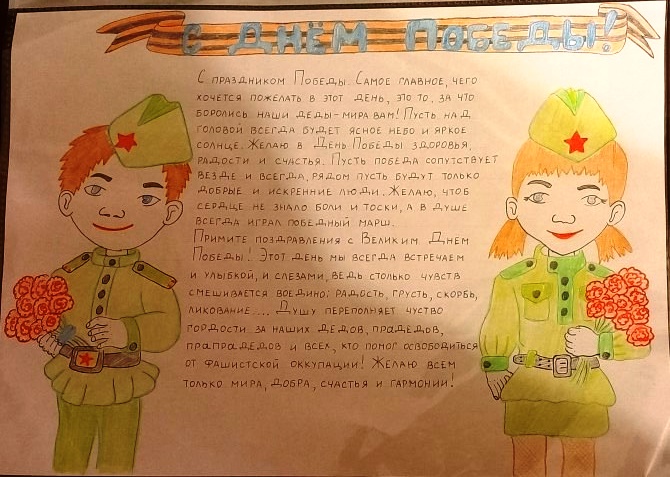 С ДНЁМ ПОБЕДЫ!
С праздником Победы. Самое главное, чего
хочется пожелать в этот день, это то, за что
боролись наши деды-мира вам! Пусть над
головой всегда будет ясное небо и яркое
солнце. Желаю в День Победы здоровья,
радости и счастья. Пусть победа сопутствует
везде и всегда, рядом пусть будут только
добрые и искренние люди. Желаю, чтоб
сердце не знало боли и тоски, а в душе
всегда играл победный марш.
Примите поздравления с Великим Днем
Победы! Этот день мы всегда встречаем
и улыбкой, и слезами, ведь столько чувств
смешивается воедино: радость, грусть, скорбь,
ликование.... Душу переполняет чуство
гордости за наших дедов, прадедов,
прапрадедов и всех, кто помог освободиться
от фашистской оккупации! Желаю всем
только мира, добра, счастья и гармонии!